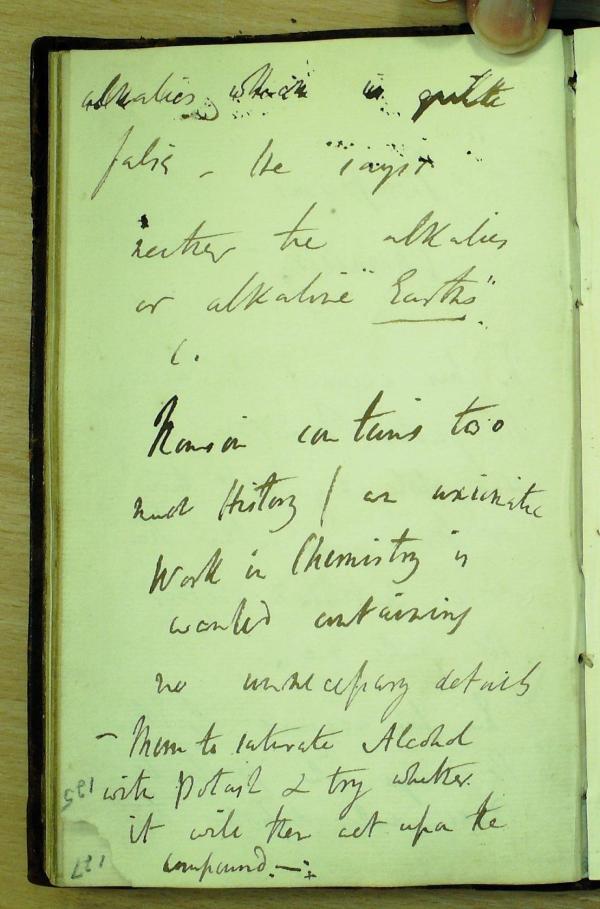 alkalies which is quite
false - He "says"
neither the alkalies
or alkaline "Earths"
(.
Thomson contains too
much History / an axiomatic
Work in Chemistry is
wanted containing
no unnecessary details
- Mem to saturate Alcohol
with Potash & try whether
it will then act upon the
compound. -
195
197